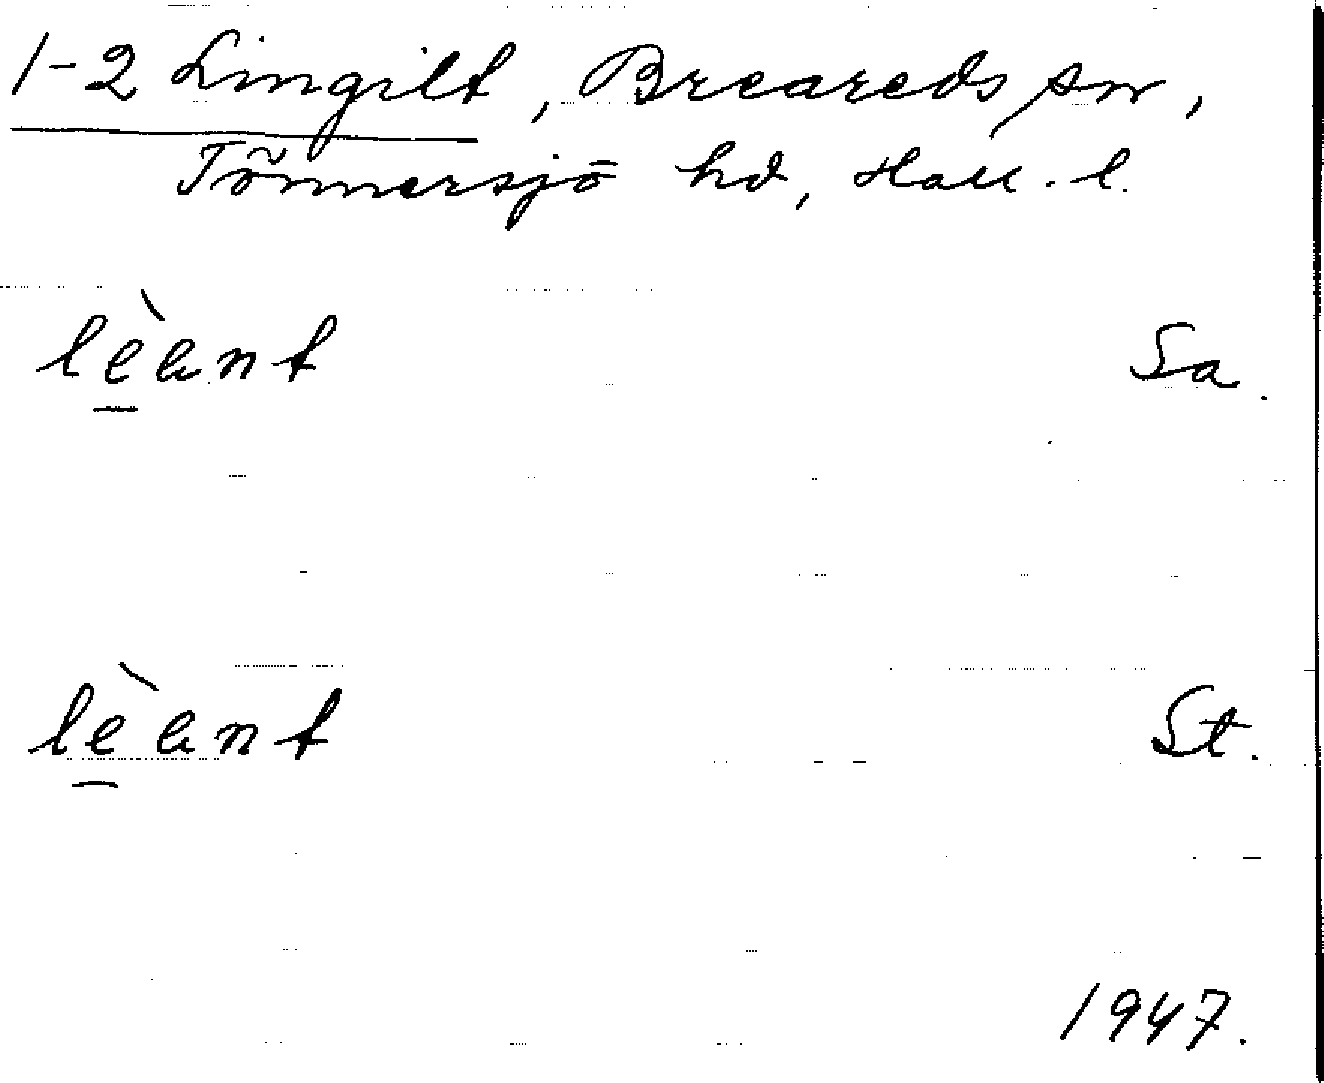 1-2 Lingilt, Breareds sn,
Tönnersjö hd, Hall. l.
lèant Sa.
lèant St.
1947.